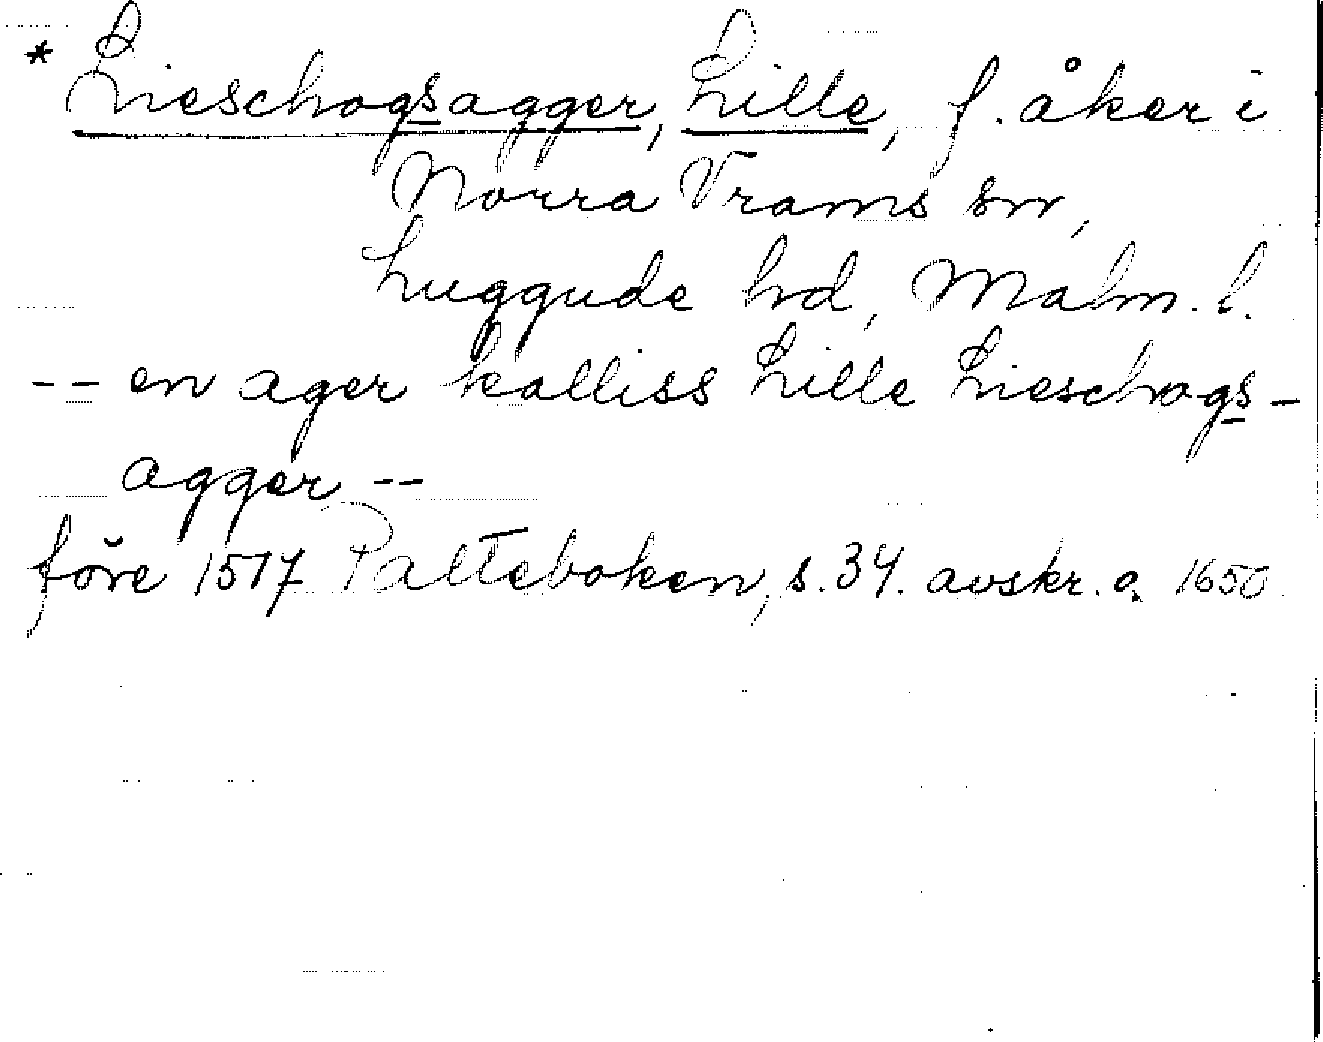 * Lieschogsagger, Lille, f. åker i
Norra Vrams sn,
Luggude hd, Malm. l.
-- en ager kalliss Lille Lieschogs-
agger --
före 1517 Palteboken, s. 34. avskr. o. 1650